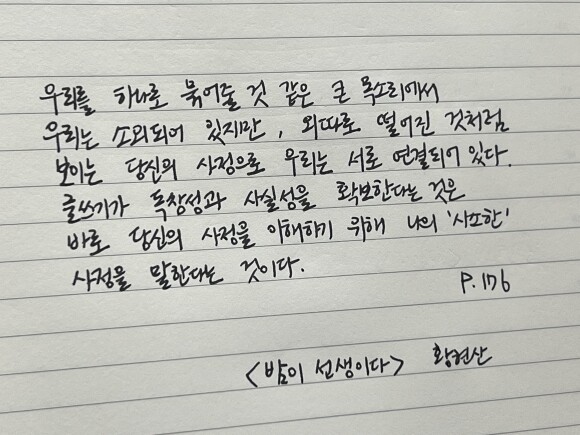 우리를 하나로 묶어줄 것 같은 큰 목소리에서
우리는 소외되어 있지만, 외따로 떨어진 것처럼
보이는 당신의 사정으로 우리는 서로 연결되어 있다.
글쓰기가 독창성과 사실성을 확보한다는 것은
바로 당신의 사정을 이해하기 위해 나의 '사소한'
사정을 말한다는 것이다.
P.176
<밤이 선생이다> 황현산